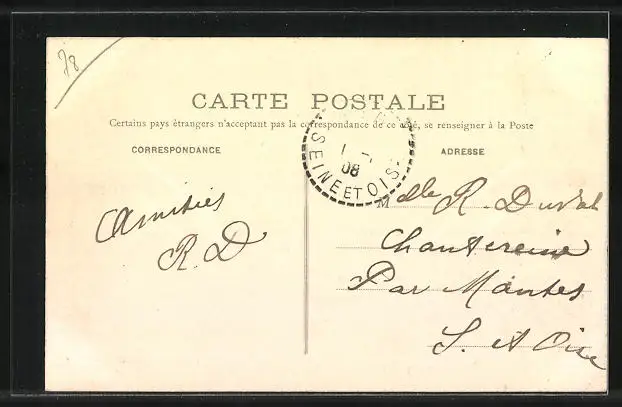 78
CARTE POSTALE
Certains pays étrangers n'acceptant pas la correspondance de ce côté, se renseigner à la Poste
CORRESPONDANCE
ADRESSE
1 - 1
08
SEINE ET OISE
Amitiés
R. D
Mdelle R. Duval
Chantereine
Par Mantes
S. et Oise